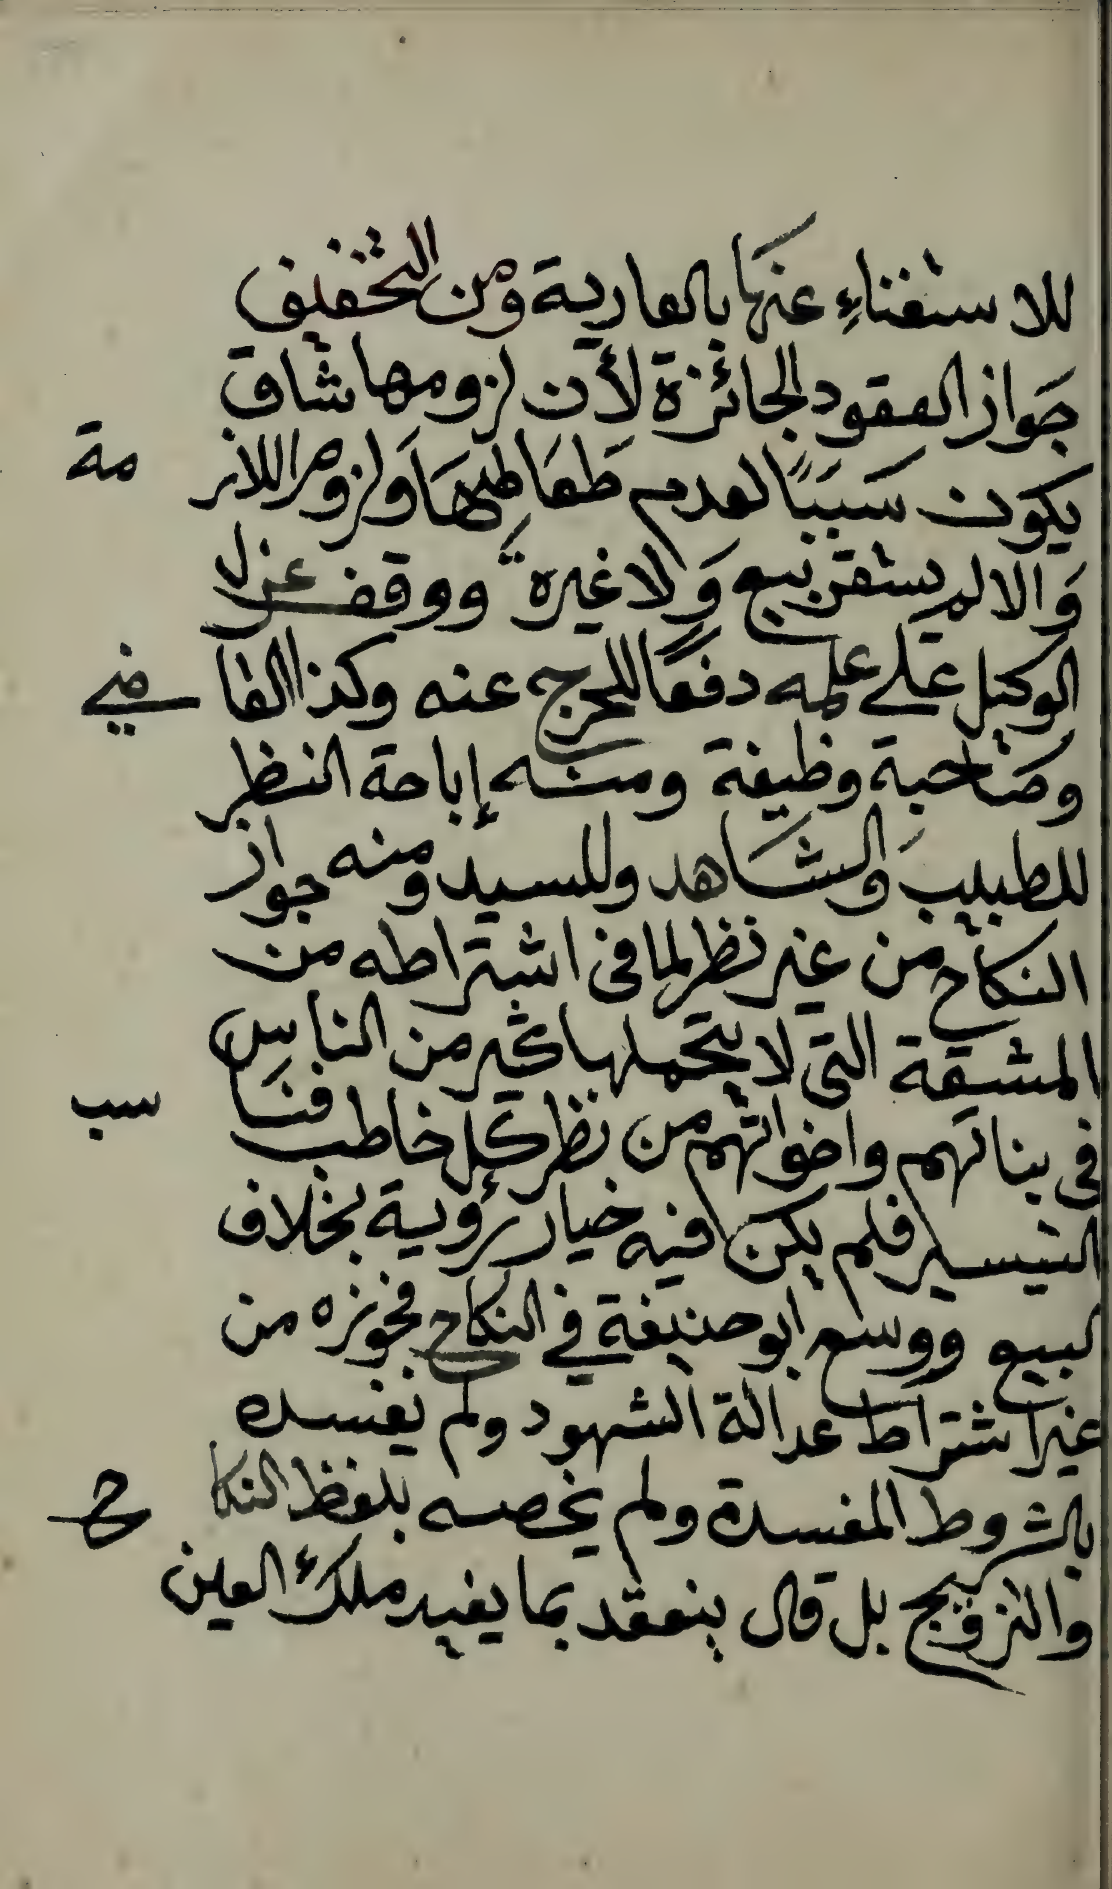 للاستغناء عنها بالعارية ومن التخفيف
جواز العقود الجائزة لأن لزومها شاق
يكون سببًا لعدم طعاطيها ولزوم اللاز مة
والا لم يستقر بيع ولا غيره ووقف عزل
الوكيل على علمه دفعًا للحرج عنه وكذا القا ضي
وصاحبة وظيفة ومنه إباحة النظر
للطبيب والشاهد وللسيد ومنه جواز
النكاح من غير نظر لما في اشتراطه من
المشقة التي لا يتحملها كثير من الناس
في بناتهم واخواتهم من نظر كل خاطب فنا سب
التيسير فلم يكن فيه خيار رؤية بخلاف
لبيع ووسع ابو حنيفة في النكاح فجوزه من
غير اشتراط عدالة الشهود ولم يفسده
بالشروط المفسدة ولم يخصه بلفظ النكا ح
والتزويج بل قال ينعقد بما يفيد ملك العين